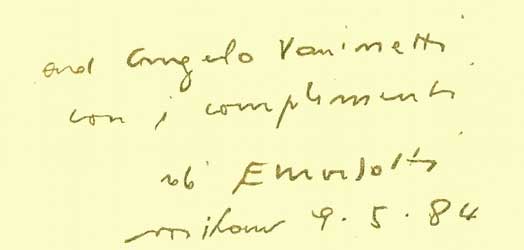 ad Angelo Vaninetti
con i complimenti
di
milano 9.5.84